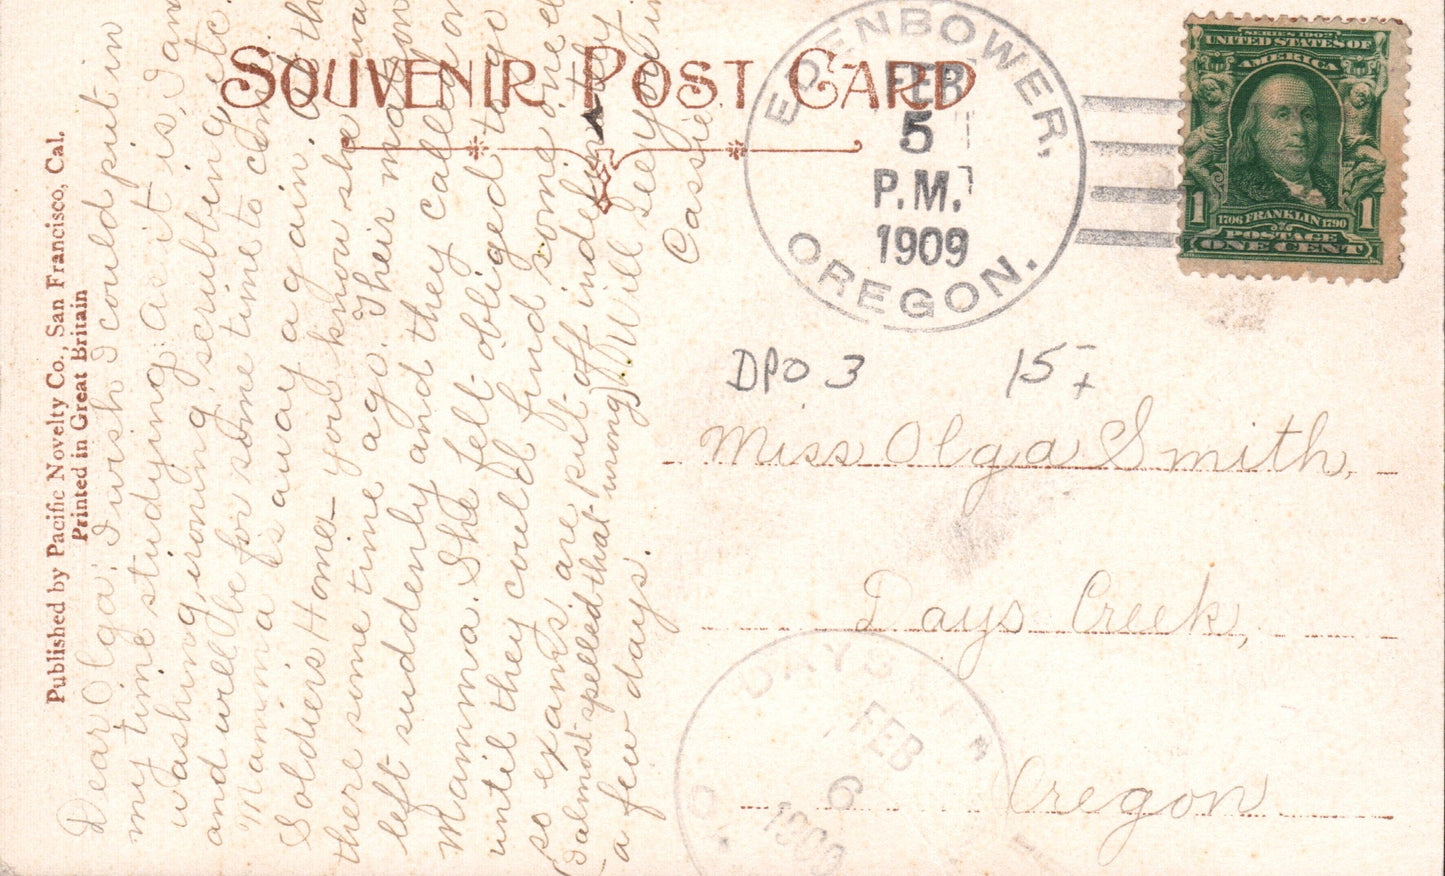 SOUVENIR POST CARD
Published by Pacific Novelty Co., San Francisco, Cal.
Printed in Great Britain
EDENBOWER,
FEB
5
P.M.
1909
OREGON.
SERIES 1902
UNITED STATES OF
AMERICA
1706 FRANKLIN 1790
1 1
POSTAGE
ONE CENT
DPO 3
15
Miss Olga Smith,
Days Creek,
Oregon
DAYS
FEB
6
1909
Dear Olga: I wish I could put in
my time studying as it is, I am
washing, ironing, scrubbing etc.
and will be for some time to come
Mamma is away again. At the
Soldiers Home - you know she was
there some time ago. Their matron
left suddenly and they called on
Mamma. She felt obliged to go
until they could find some one else
so exams. are put-off indefinitely
(almost spelled that wrong) Will see you in
a few days.
Cassie